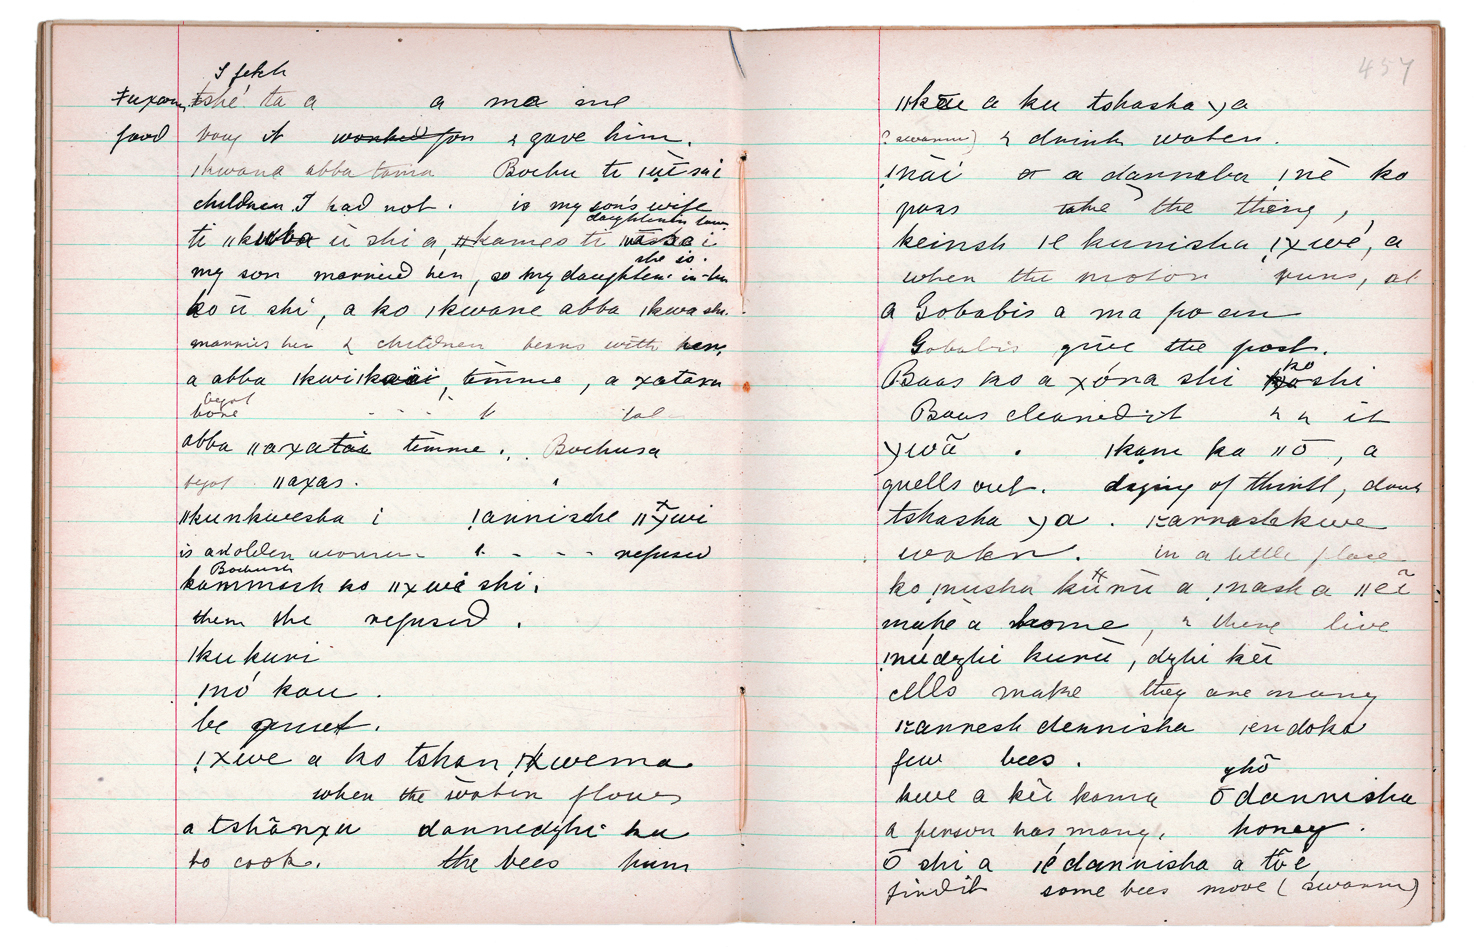 I fetch
ǂuxam tshé ta a a ma me
food buy it worked for & gave him.
ǀkwana abba tama Bochu ti ǀūī sai
children I had not. is my son's wife
daughter in law
ti ǁkuba ū shi a, ǁkames ti i
she is.
my son married her, so my daughter in-law
ko ū shi, a ko ǀkwane abba ǀkwa she.
marries her & children bears with her,
a abba ǀkwiǀkaai, timme, a xataru
begot
bore
abba ǁaxataa timme. Bochusa
begot ǁaxas.
ǁkunkwesha i ǃannische ǁxwi
is an older women refused
Bochush
kammash ko ǁxwé shi.
them she refused.
ǀku kuri
ǃnó kau.
be quiet.
ǃxwe a ko tshan ǃxwema
when the water flows
a tshānxu dannedzhi ka
to cook. the bees hum
457
ǁkāu a ku tshasha γa
(? swarm) & drink water.
ǃnāi a dannaba ǃnē ko
pass take the thing,
keinsh ǀe kunisha ǃxwé, a
when the motor runs, at
a Gobabis a ma po am
Gobabis give the post.
Baas ko a xóna shi ko shi
Baas cleaned it & & it
γwā. ǀkam ka ǁō, a
quells out. dying of thirst, dam
tshasha γa. ǀannashkwe
water. in a little place
ko ǃnusha kūrū a ǃnash a ǁēi
make a home, & there live
ǃnúdzhi kurū, dzhi kēi
cells make they are many
ǀannesh dennisha ǀendoka
few bees.
ghō
kwe a kēi kama ō dannisha
a person has many. honey.
ō shi a ǀé dannisha a tōe
find it some bees move (swarm)